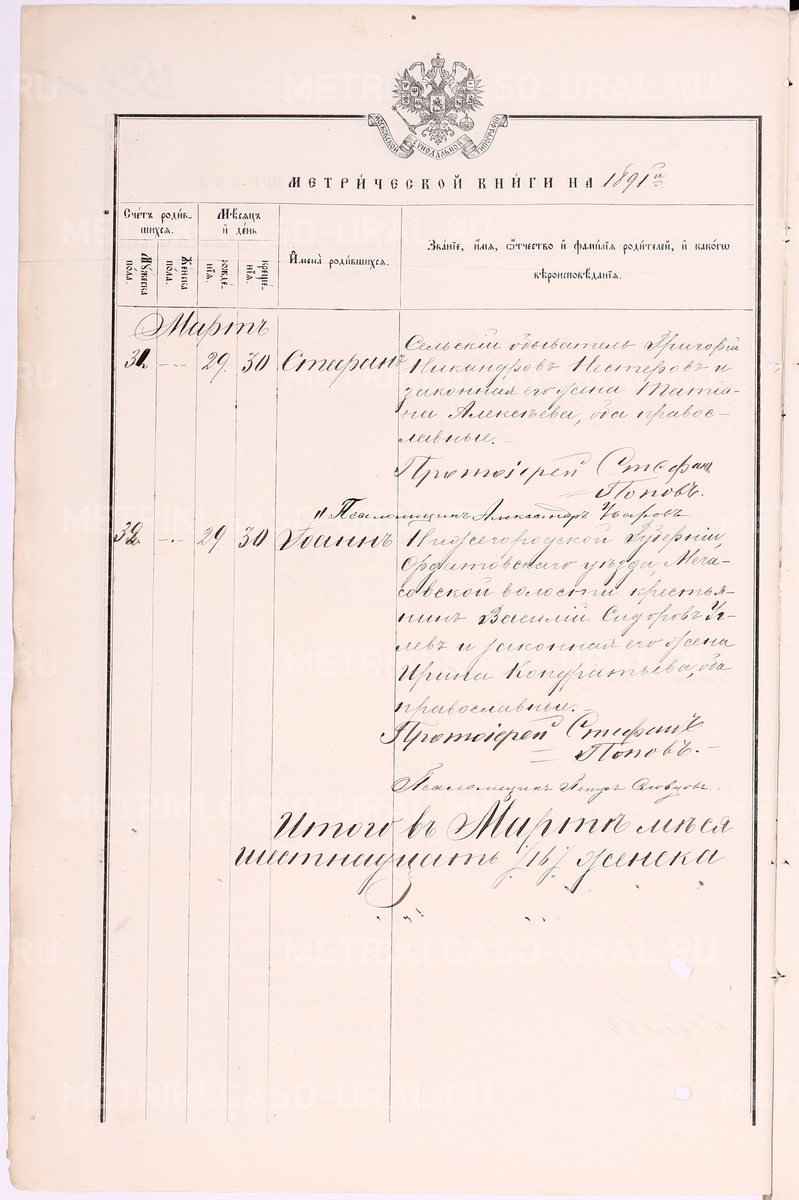 МОСКОВСКОЙ СУНОДАЛЬНОЙ ТИПОГРАФІИ
МЕТРИЧЕСКОЙ КНИГИ НА 1891 й
Счетъ родив-
шихся.
Мѣсяцъ
и день
Имена родившихся.
Званіе, имя, отчество и фамилія родителей, и какого
вѣроисповѣданія.
Мужеска пола.
Женска пола.
рожде-
нія.
креще-
нія.
Мартъ
31. 29. 30 Стефанъ
Сельскій обыватель Григорій
Никандровъ Нестеровъ и
законная его жена Татіа-
на Алексѣева, оба право-
славные.
Протоіерей Стефанъ
Поповъ.
Псаломщикъ Александръ Уваровъ
32. 29 30 Іоаннъ
Нижегородской Губерніи,
Ардатовскаго уѣзда, Меча-
совской волости крестья-
нинъ Василій Сидоровъ
левъ и законная его жена
Ирина Кондратьева, оба
православные.
Протоіерей Стефанъ
Поповъ.
Псаломщикъ Петръ Словцовъ
Итого въ Мартѣ мѣся
шестнадцать /16/ женска
METRIKI.GASO-URAL.RU